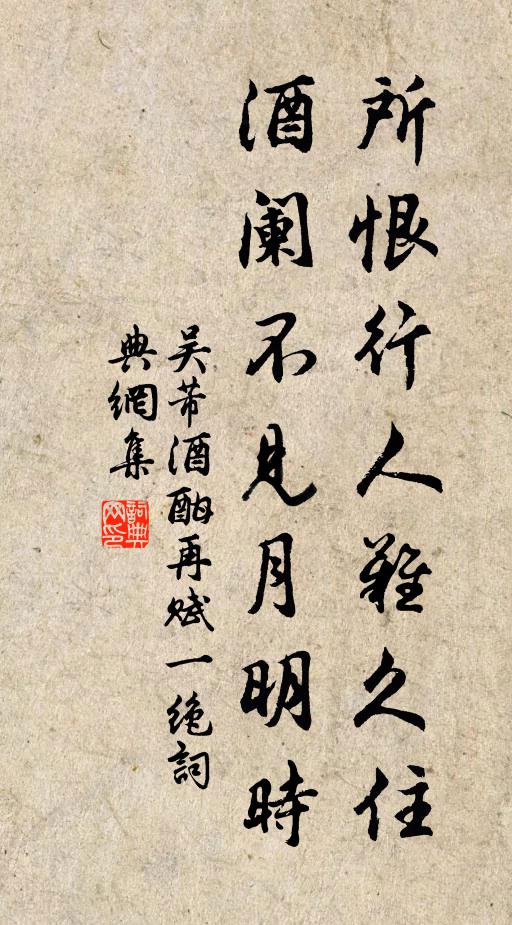 所恨行人難久住
酒阑不見月明時
吴芾酒酣再赋一絶詞
典網集
詞典
网印